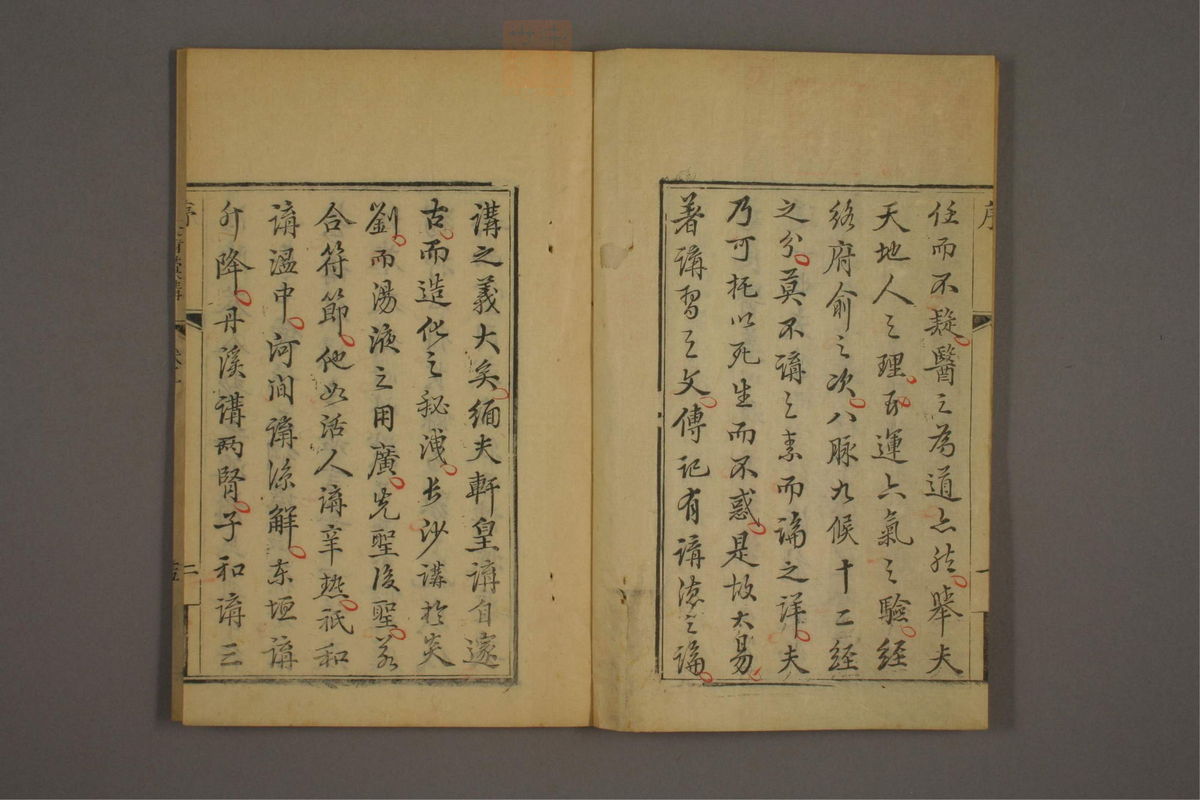 任而不疑醫之為道亦然舉夫
天地人之理五運六氣之驗經
絡府俞之次八脉九候十二經
之分莫不講之素而論之詳夫
乃可托以死生而不惑是故大易
著講習之文傳記有講德之論
講之義大矣緬夫軒皇講自邃
古而造化之秘洩長沙講於炎
劉而湯液之用廣先聖後聖若
合符節他如活人講辛熱祇和
講溫中河澗講涼解东垣講
升降丹溪講两腎子和講三
序
序
一
二